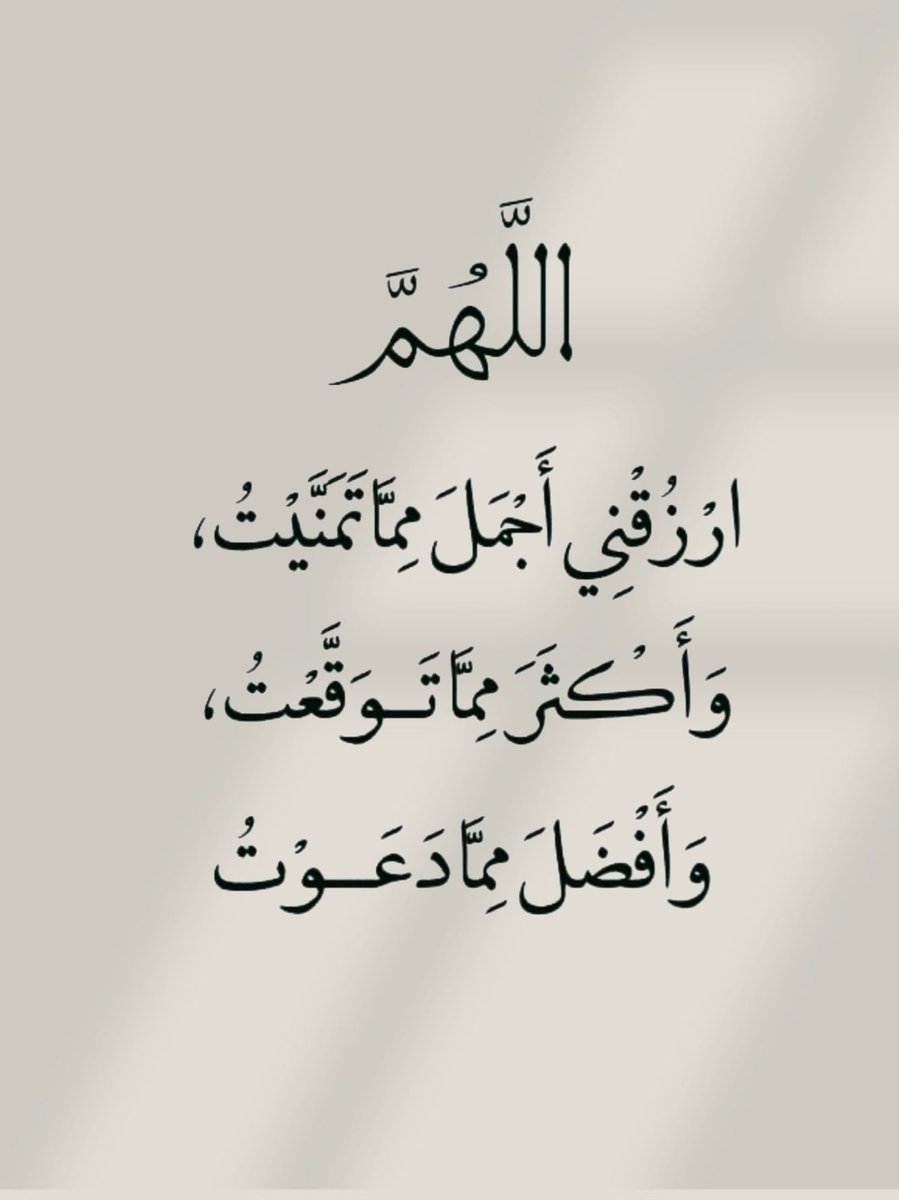 اللَّهُمَّ
ارْزُقْنِي أَجْمَلَ مِمَّا تَمَنَّيْتُ،
وَأَكْثَرَ مِمَّا تَوَقَّعْتُ،
وَأَفْضَلَ مِمَّا دَعَوْتُ